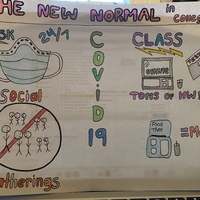 THE NEW NORMAL in
SK 24/7
COVID 19
CLASS
ONLINE
TONS OF HW!
Social
Gatherings
Food
=M